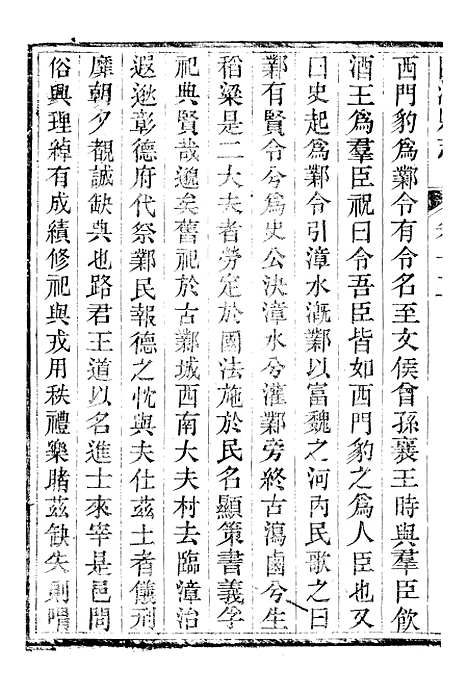 西門豹爲鄴令有令名至文侯曾孫襄王時與羣臣飲
酒王爲羣臣祝曰令吾臣皆如西門豹之爲人臣也又
曰史起爲鄴令引漳水漑鄴以富魏之河內民歌之曰
鄴有賢令兮爲史公決漳水兮灌鄴旁終古瀉鹵兮生
稻粱是二大夫者勞定於國法施於民名顯策書義孚
祀典賢哉邈矣舊祀於古鄴城西南大夫村去臨漳治
遐逖彰德府代祭鄴民報德之忱與夫仕茲土者儀刑
靡朝夕覩誠缺典也路君王道以名進士來宰是邑問
俗興理綽有成績修祀與戎用秩禮樂睹茲缺失則喟